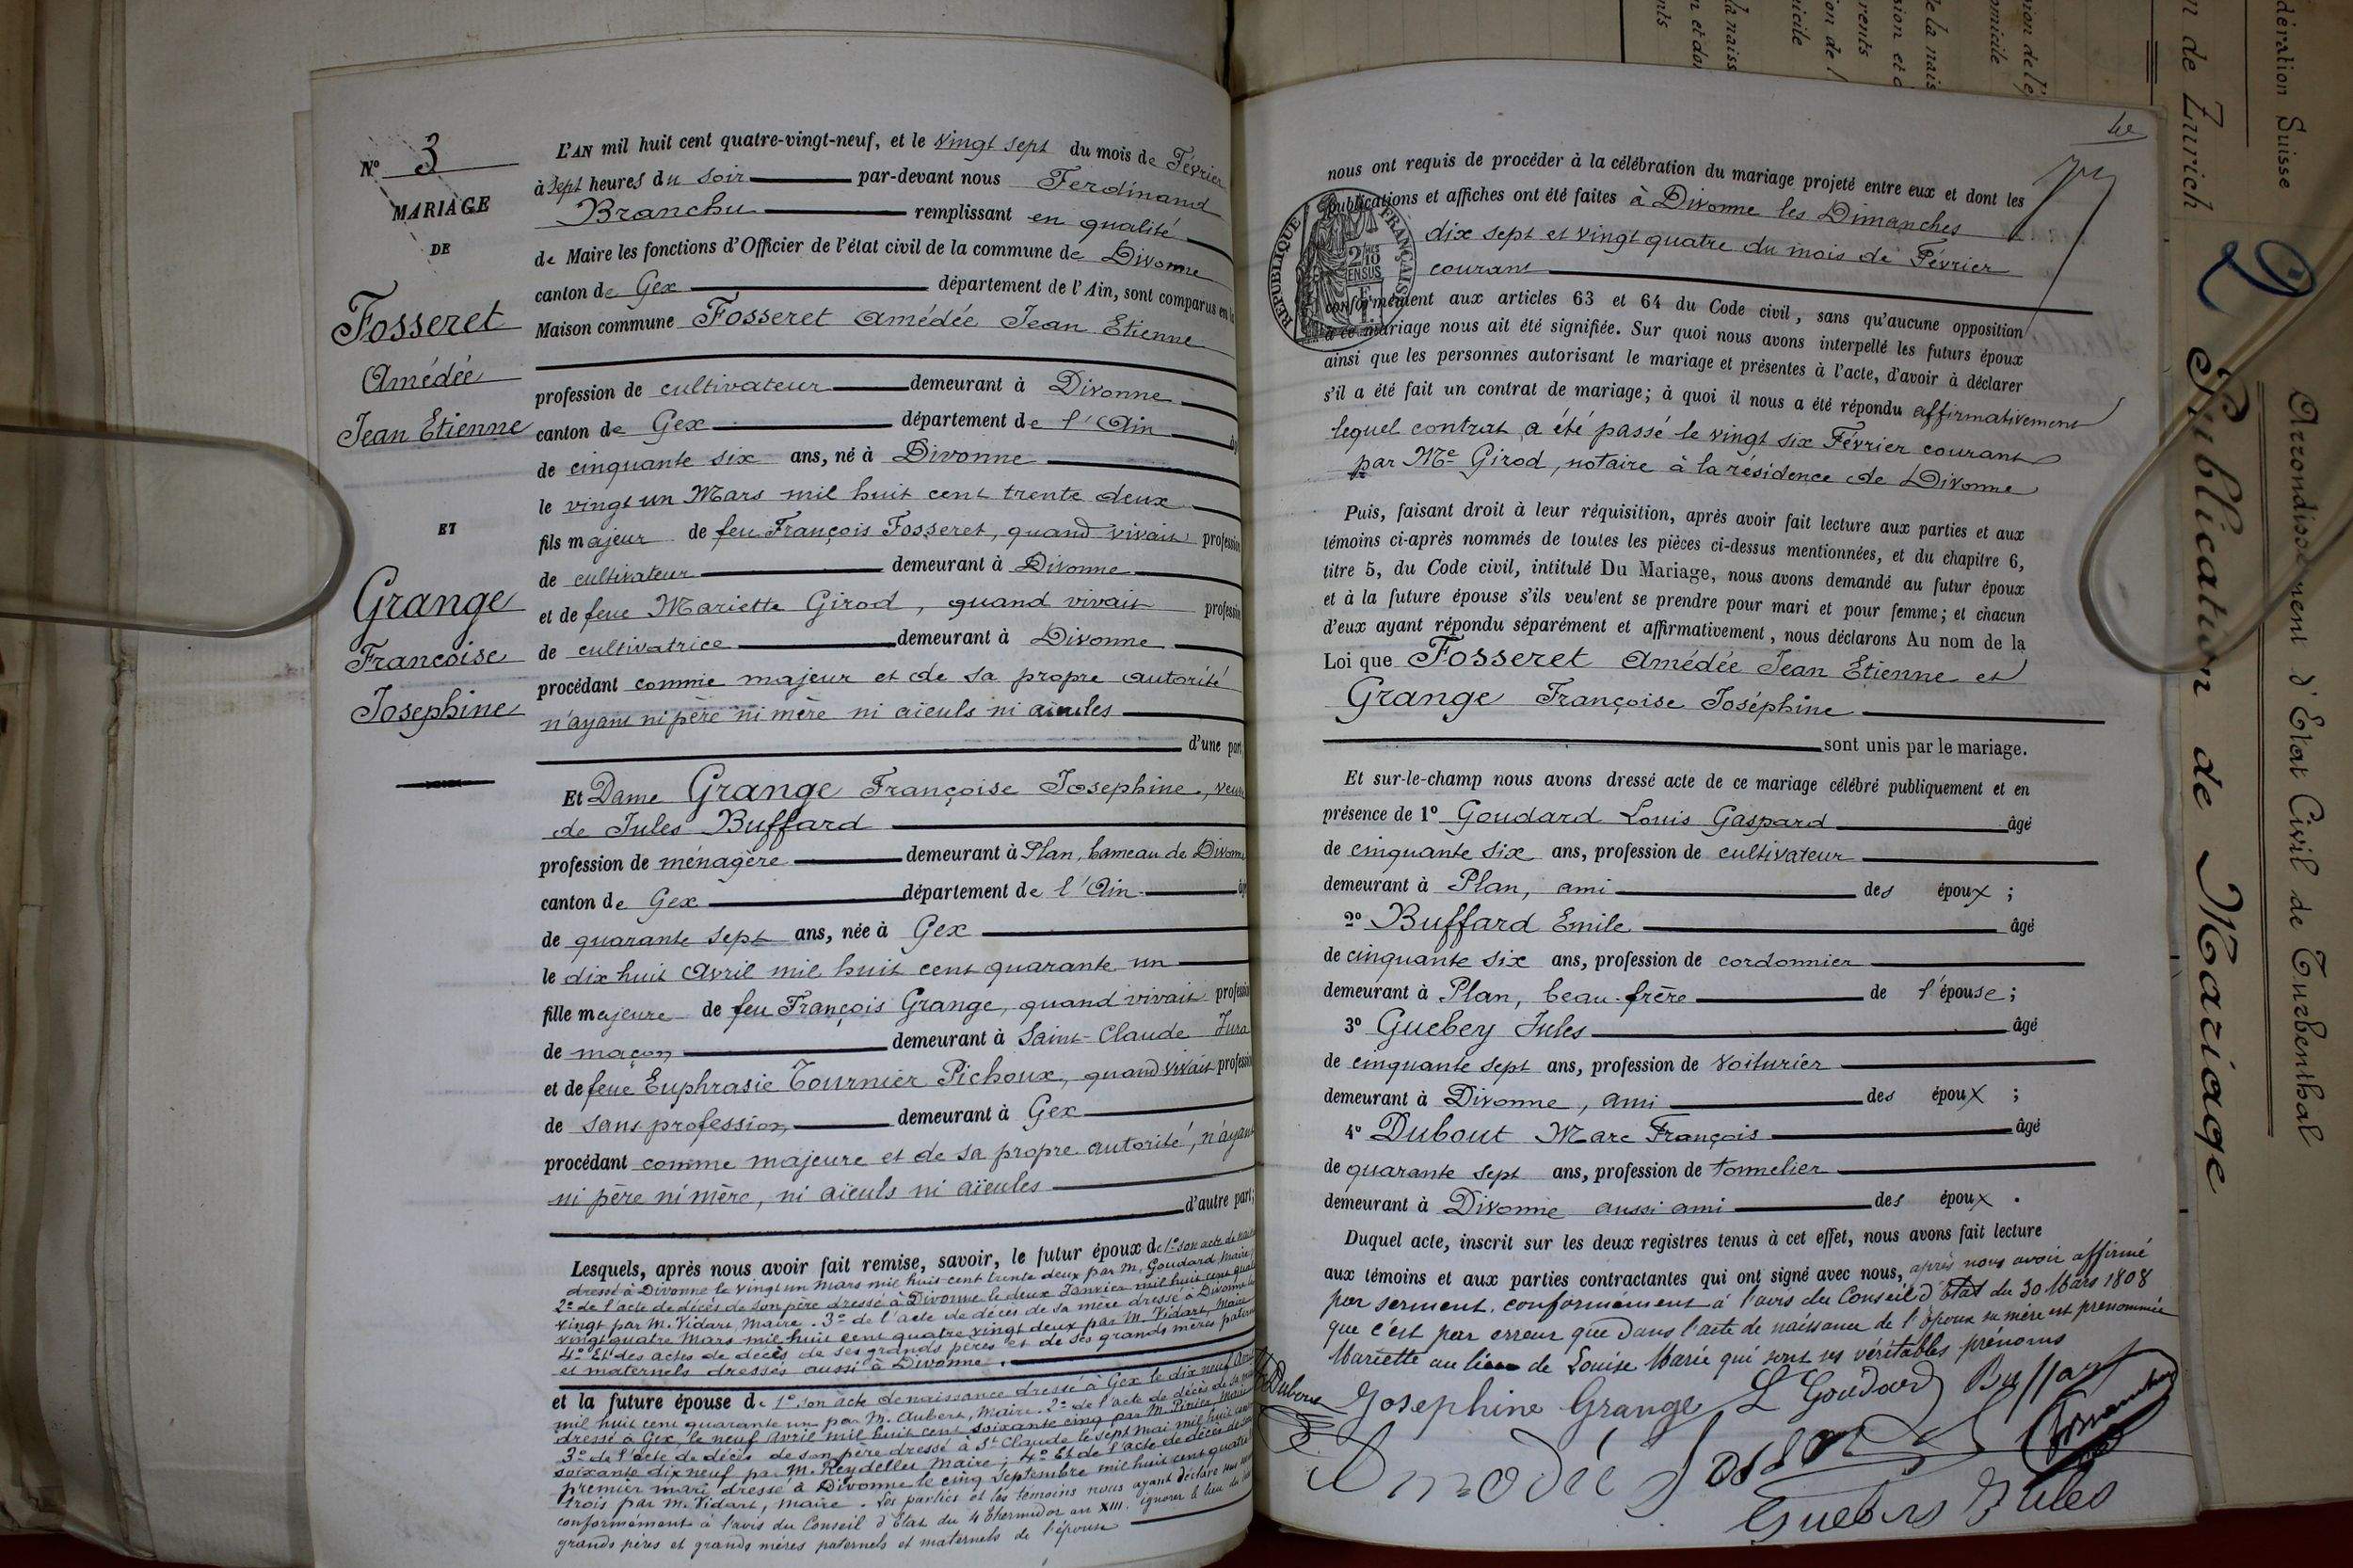 N° 3
MARIAGE
DE
Fosseret
Amédée
Jean Etienne
ET
Grange
Françoise
Josephine
L'AN mil huit cent quatre-vingt-neuf, et le vingt sept du mois de Février
à sept heures du soir par-devant nous Ferdinand
Branchu remplissant en qualité
de Maire les fonctions d'Officier de l'état civil de la commune de Divonne
canton de Gex département de l'Ain, sont comparus en la
Maison commune Fosseret Amédée Jean Etienne
profession de cultivateur demeurant à Divonne
canton de Gex département de l'Ain
de cinquante six ans, né à Divonne
le vingt un Mars mil huit cent trente deux
fils majeur de feu François Fosseret, quand vivait profession
de cultivateur demeurant à Divonne
et de feue Mariette Girod, quand vivait profession
de cultivatrice demeurant à Divonne
procédant comme majeur et de sa propre autorité
n'ayant ni père ni mère ni aïeuls ni aïeules
d'une part
Et Dame Grange Françoise Josephine, veuve
de Jules Buffard
profession de ménagère demeurant à Plan, hameau de Divonne
canton de Gex département de l'Ain
de quarante sept ans, née à Gex
le dix huit Avril mil huit cent quarante un
fille majeure de feu François Grange, quand vivait profession
de maçon demeurant à Saint-Claude Jura
et de feue Euphrasie Tournier Pichoux, quand vivait profession
de sans profession demeurant à Gex
procédant comme majeure et de sa propre autorité, n'ayant
ni père ni mère, ni aïeuls ni aïeules
d'autre part;
Lesquels, après nous avoir fait remise, savoir, le futur époux de 1° son acte de
dressé à Divonne le vingt un Mars mil huit cent trente deux par M. Goudard, Maire,
2° de l'acte de décès de son père dressé à Divonne le deux Janvier mil huit cent quatre
vingt par M. Vidart, Maire. 3° de l'acte de décès de sa mère dressé à Divonne le
vingt quatre Mars mil huit cent quatre vingt deux par M. Vidart, Maire
4° Et des actes de décès de ses grands pères et de ses grands mères paternels
et maternels dressés aussi à Divonne.
et la future épouse de 1° son acte de naissance dressé à Gex le dix neuf Avril
mil huit cent quarante un par M. Aubert, Maire. 2° de l'acte de décès de sa mère
dressé à Gex, le neuf Avril mil huit cent soixante cinq par M. Maire
3° de l'acte de décès de son père dressé à St Claude le sept mai mil huit cent
soixante dix neuf par M. Reydellet Maire; 4° Et de l'acte de décès de son
premier mari dressé à Divonne le cinq Septembre mil huit cent quatre
trois par M. Vidart, Maire. Les parties et les témoins nous ayant déclaré
conformément à l'avis du Conseil d'Etat du 4 Thermidor an XIII. ignorer le lieu du
grands pères et grands mères paternels et maternels de l'épouse
nous ont requis de procéder à la célébration du mariage projeté entre eux et dont les
publications et affiches ont été faites à Divonne les Dimanches
dix sept et vingt quatre du mois de Février
courant
conformément aux articles 63 et 64 du Code civil, sans qu'aucune opposition
à ce mariage nous ait été signifiée. Sur quoi nous avons interpellé les futurs époux
ainsi que les personnes autorisant le mariage et présentes à l'acte, d'avoir à déclarer
s'il a été fait un contrat de mariage; à quoi il nous a été répondu affirmativement
lequel contrat a été passé le vingt six Février courant
par Me Girod, notaire à la résidence de Divonne
Puis, faisant droit à leur réquisition, après avoir fait lecture aux parties et aux
témoins ci-après nommés de toutes les pièces ci-dessus mentionnées, et du chapitre 6,
titre 5, du Code civil, intitulé Du Mariage, nous avons demandé au futur époux
et à la future épouse s'ils veulent se prendre pour mari et pour femme; et chacun
d'eux ayant répondu séparément et affirmativement, nous déclarons Au nom de la
Loi que Fosseret Amédée Jean Etienne et
Grange Françoise Joséphine
sont unis par le mariage.
Et sur-le-champ nous avons dressé acte de ce mariage célébré publiquement et en
présence de 1° Goudard Louis Gaspard âgé
de cinquante six ans, profession de cultivateur
demeurant à Plan, ami des époux;
2° Buffard Emile âgé
de cinquante six ans, profession de cordonnier
demeurant à Plan, beau-frère de l'épouse;
3° Guebey Jules âgé
de cinquante sept ans, profession de voiturier
demeurant à Divonne, ami des époux;
4° Dubout Marc François âgé
de quarante sept ans, profession de tonnelier
demeurant à Divonne aussi ami des époux.
Duquel acte, inscrit sur les deux registres tenus à cet effet, nous avons fait lecture
aux témoins et aux parties contractantes qui ont signé avec nous, après nous avoir affirmé
par serment, conformément à l'avis du Conseil d'Etat du 30 Mars 1808
que c'est par erreur que dans l'acte de naissance de l'époux sa mère est prénommée
Mariette au lieu de Louise Marie qui sont ses véritables prénoms
Josephine Grange L Goudard Buffard
Amédée
Jules
RÉPUBLIQUE FRANÇAISE
dération Suisse
n de Zurich
Arrondissement d'Etat Civil de Turbenthal
2 Publication de Mariage